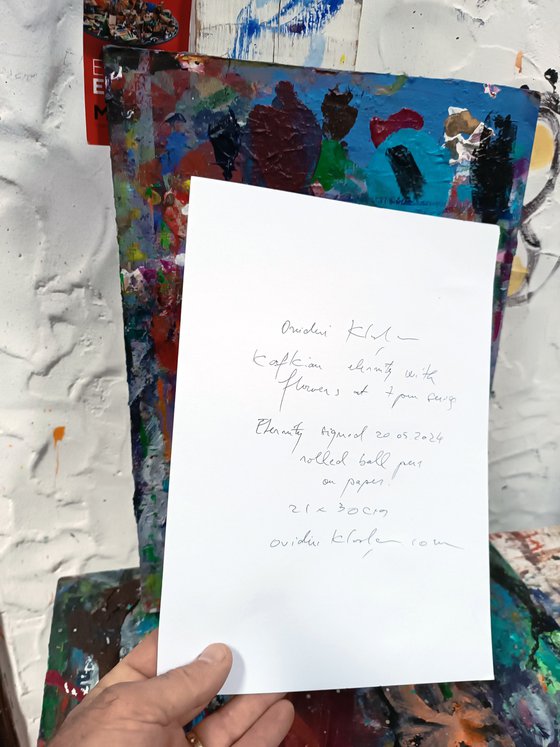 Ovidiu Kloșka
Kafkian eternity with
flowers at 7 pm
Eternity signed 20.05.2024
rolled ball pen
on paper.
21 × 30 cm
ovidiu Kloșka.com